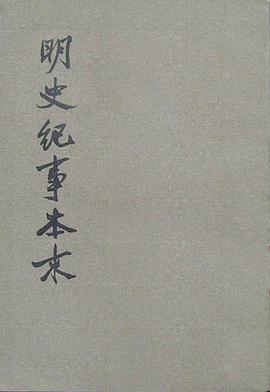 明史纪事本末